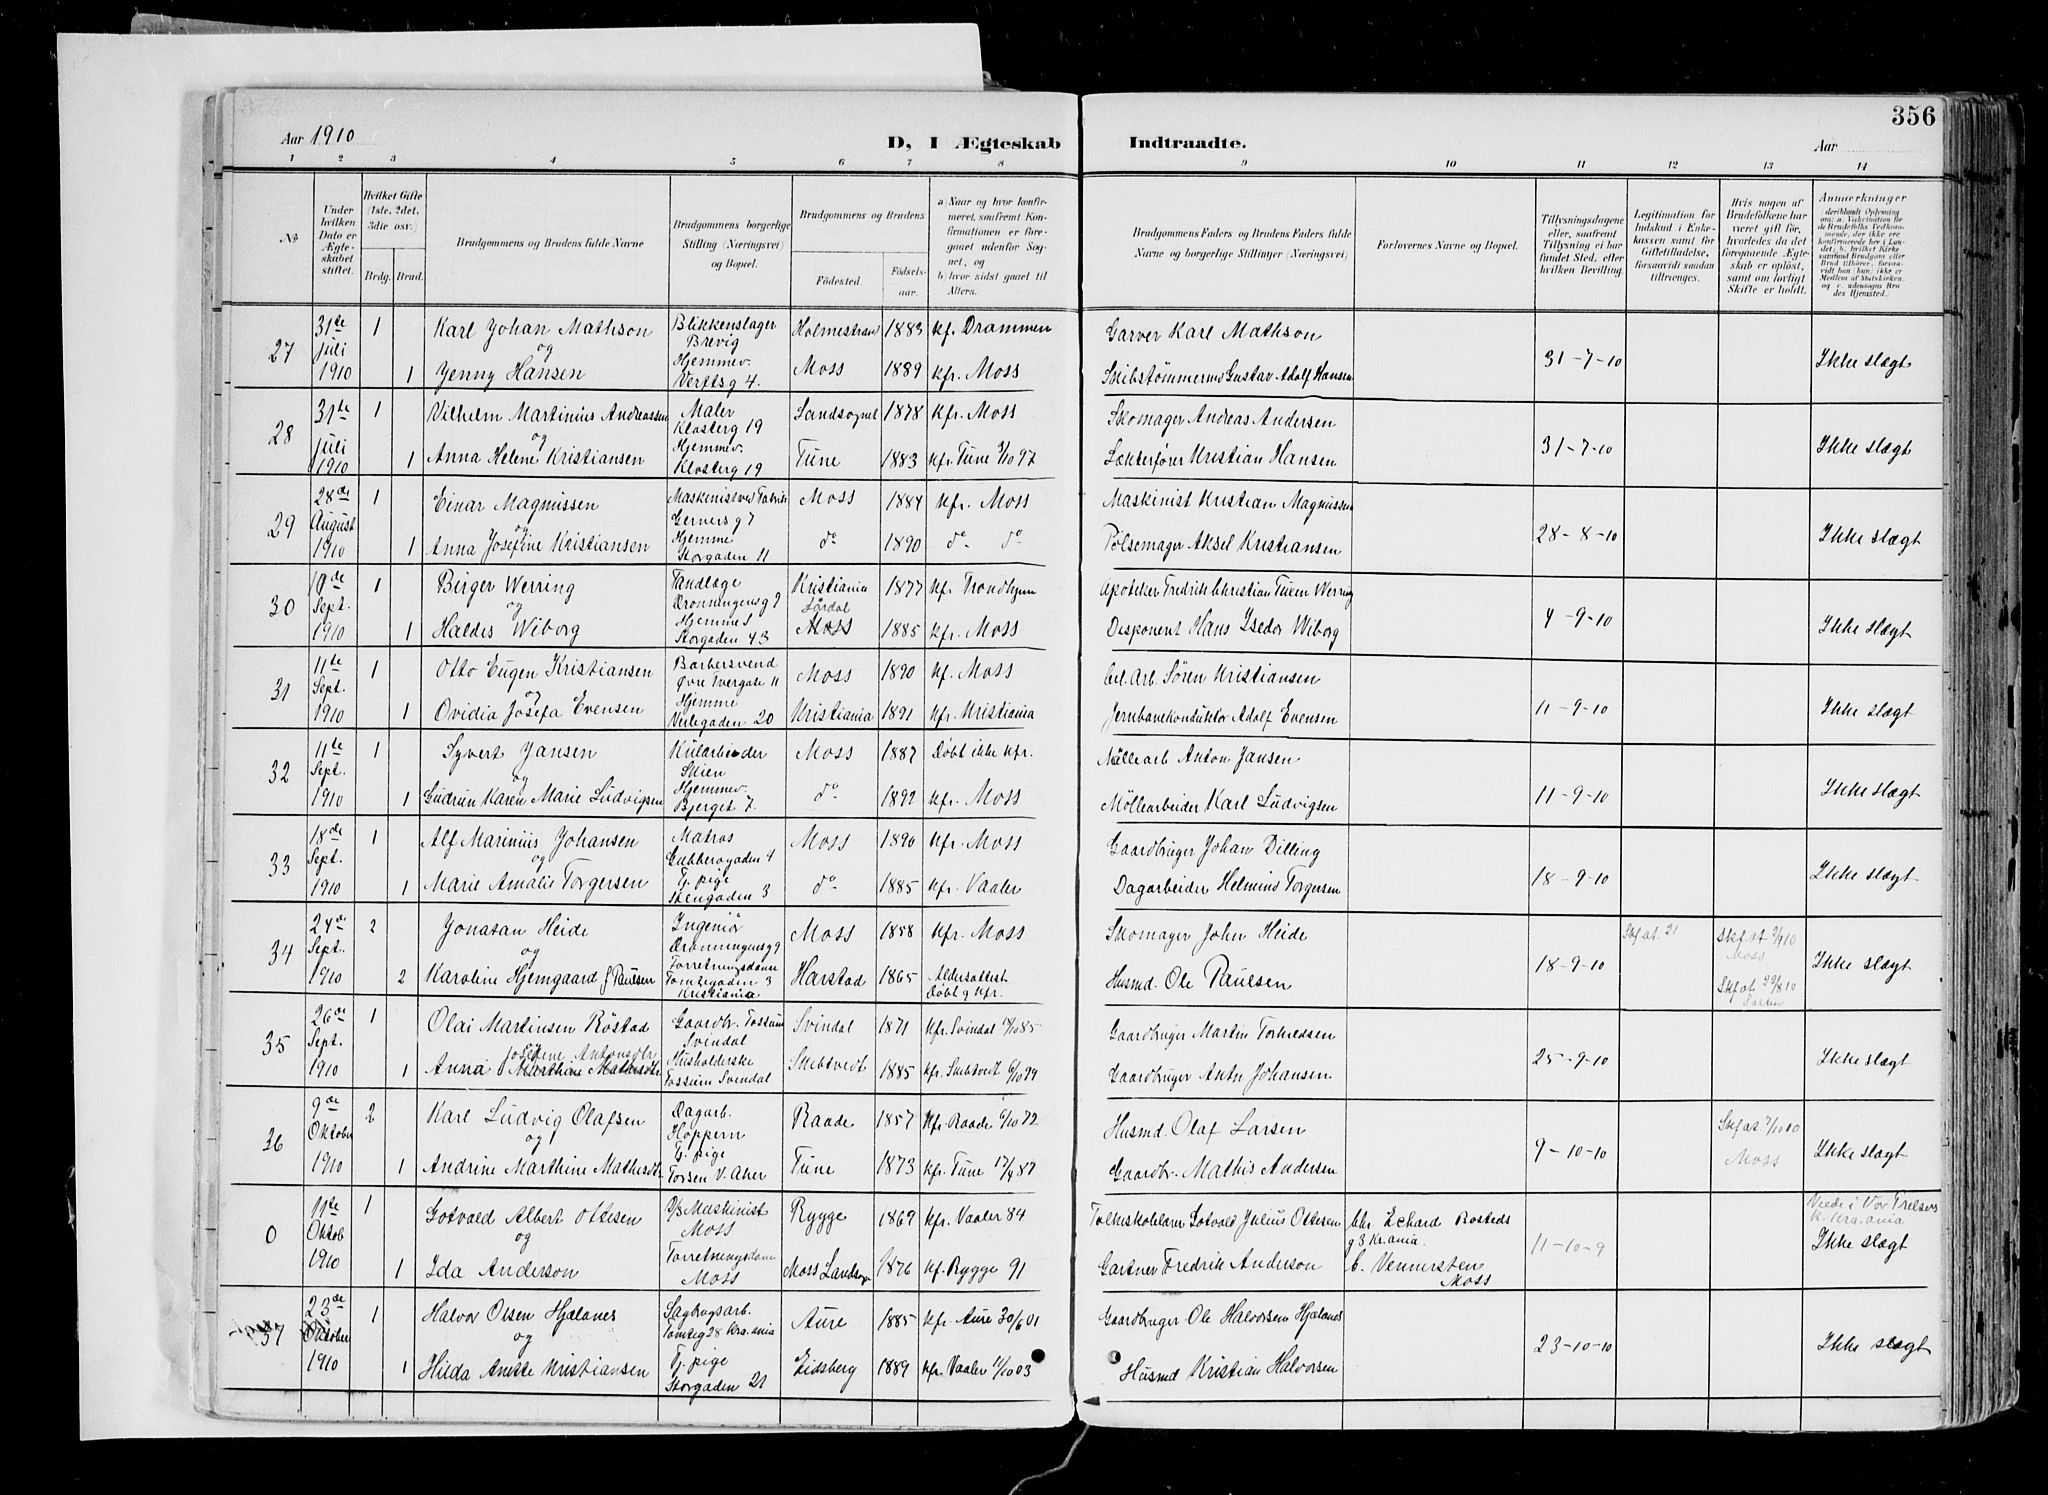 356
Aar 1910
D, I Ægteskab Indtraadte.
Aar
1 2 3 4 5 6 7 8 9 10 11 12 13 14
No
Under hvilken Dato er Ægteskabet stiftet.
Hvilket Gifte (1ste, 2det, 3die osv.)
Brdg. Brud.
Brudgommens og Brudens fulde Navne
Brudgommens borgerlige Stilling (Næringsvei) og Bopæl.
Brudgommens og Brudens
Fødested.
Fødselsaar.
a) Naar og hvor konfirmeret, saafremt Konfirmationen er foregaaet udenfor Sognet, og
b) hvor sidst gaaet til Alters.
Brudgommens Faders og Brudens Faders fulde Navne og borgerlige Stillinger (Næringsvei)
Forlovernes Navne og Bopæl.
Tillysningsdagene eller, saafremt Tillysning ei har fundet Sted, efter hvilken Bevilling.
Legitimation for Indskud i Enkekassen samt for Giftetilladelse, forsaavidt saadan tiltrænges.
Hvis nogen af Brudefolkene har været gift før, hvorledes da det foregaaende Ægteskab er opløst, samt om lovligt Skifte er holdt.
Anmærkninger
27 31te Juli 1910 1 Karl Johan Mathson Blikkenslager Brevig Holmestrand 1883 kf. Drammen Garver Karl Mathson 31-7-10 Ikke slægt
og
1 Jenny Hansen Hjemmev. Verftsg 4. Moss 1889 kfr. Moss Skibstømmermd Gustav Adolf Hansen
28 31te Juli 1910 1 Vilhelm Martinius Andreassen Maler Klosterg 19 Landsognet 1878 kfr. Moss Skomager Andreas Andersen 31-7-10 Ikke slægt
og
1 Anna Helene Kristiansen Hjemmev. Klosterg 19 Tune 1883 kfr. Tune 3/10 97 Lekterfører Kristian Hansen
29 28de August 1910 1 Einar Magnussen Maskinist ved Fabrik Gernersg 7 Moss 1884 kfr. Moss Maskinist Kristian Magnussen 28-8-10 Ikke slægt
og
1 Anna Josefine Kristiansen Hjemme Storgaden 11 do 1890 do do Pölsemager Aksel Kristiansen
30 10de Sept. 1910 1 Birger Werring Tandlæge Dronningensg 9 Kristiania 1877 kfr Trondhjem Apoteker Fredrik Christian Tuxen Werring 4-9-10 Ikke slægt
og
1 Haldis Wiborg Hjemme Storgaden 43 Moss 1885 kfr. Moss Disponent Hans Isedor Wiborg
31 11te Sept. 1910 1 Otto Eugen Kristiansen Barbersvend Øvre Tvergate 11 Moss 1890 kf. Moss Cel. Arb. Sören Kristiansen 11-9-10 Ikke slægt
og
1 Ovidia Josefa Evensen Hjemme Verlegaden 20 Kristiania 1891 kfr. Kristiania Jernbanekonduktör Adolf Evensen
32 11te Sept. 1910 1 Syvert Jansen Kularbeider Skien Moss 1887 Døbt ikke kfr. Möllearb Anton Jansen 11-9-10 Ikke slægt
og
1 Gudrun Karen Marie Ludvigsen Hjemmev. Bjerget 7. do 1892 kfr. Moss Möllearbeider Karl Ludvigsen
33 18de Sept. 1910 1 Alf Marinius Johansen Matros Gubberogaden 4 Moss 1890 kfr. Moss Gaardbruger Johan Dilling 18-9-10 Ikke slægt
og
1 Marie Amalie Torgersen Tj. pige Stengaden 3 do 1885 kfr. Vaaler Dagarbeider Helmius Torgersen
34 24de Sept. 1910 2 Jonatan Heide Ingeniör Dronningensg 9 Moss 1858 kfr. Moss Skomager John Heide 18-9-10 Skf at. 21 Skf. at 2/9 10 Moss Ikke slægt
og
2 Karoline Hjemgaard f Paulsen Forretningsdame Tomtegaden 3 Kristiania Harstad 1865 Aldersattest Döbt g kfr. Husmd. Ole Paulsen Skf at 29/8 10 Salten
35 26de Sept. 1910 1 Olai Martinsen Röstad Gaardbr. Fossum Svindal Svindal 1871 kfr. Svindal 4/10 85 Gaardbruger Martin Torkildsen 25-9-10 Ikke slægt
Josefine Antonsdtr
1 Anna Marthine Mathisdtr Husholderske Fossum Svendal Skibtvedt 1885 kfr. Skibtvedt 6/10 99 Gaardbruger Antn Johansen
36 9de Oktober 1910 2 Karl Ludvig Olafsen Dagarb. Hoppern Raade 1857 kfr. Raade 6/10 72 Husmd. Olaf Larsen 9-10-10 Skf at. 7/10 00 Moss Ikke slægt
og
1 Andrine Marthine Mathisdtr Tj. pige Torsen V. Aker Tune 1873 kfr. Tune 17/4 87 Gaardbr. Mathis Andersen
0 11te Oktob 1910 1 Gotvald Albert Ottesen D/S Maskinist Moss Rygge 1869 kfr. Vaaler 84 Folkeskolelærer Gotvald Julius Ottesen Chr. Echard Rosteds g 3 Kr.ania. 11-10-9 Viede i Vor Frelsers K. Kra.ania Ikke slægt
og
1 Ida Anderson Forretningsdame Moss Moss Landsogn 1876 kf. Rygge 91 Gartner Fredrik Anderson C. Vennersten Moss
37 23de Oktober 1910 1 Halvor Olsen Hjælanes Sagbrugsarb. Tomteg 28 Kra.ania Aure 1885 kfr. Aure 30/6 01 Gaardbruger Ole Halvorsen Hjælanes 23-10-10 Ikke slægt
og
1 Hilda Anette Kristiansen Tj. pige Storgaden 21 Eidsberg 1889 kfr. Vaaler 11/10 03 Husmd Kristian Halvorsen